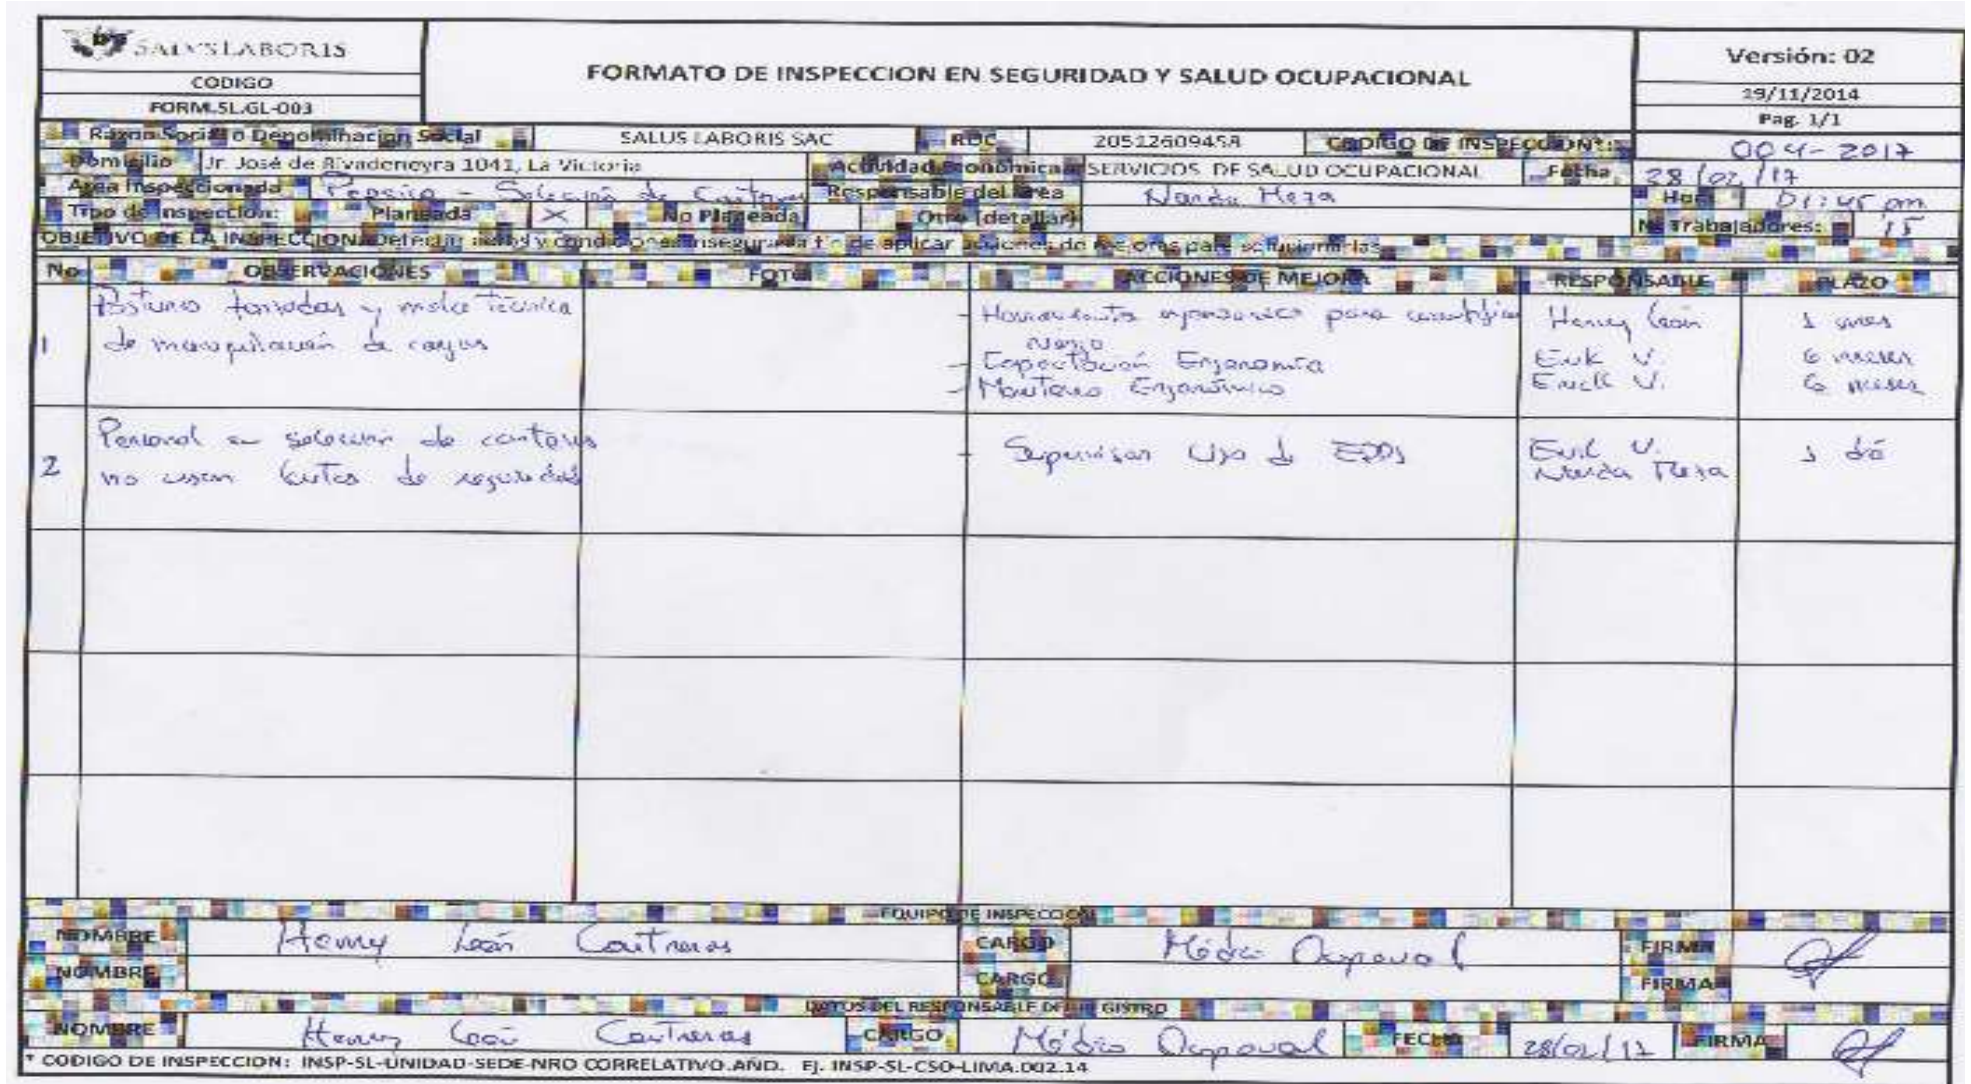 SALVSLABORIS
CODIGO
FORM.SL.GL-003
FORMATO DE INSPECCION EN SEGURIDAD Y SALUD OCUPACIONAL
Versión: 02
19/11/2014
Pag. 1/1
Razon Social o Denominacion Social SALUS LABORIS SAC RUC 20512609458 CODIGO DE INSPECCION*: 004-2017
Domicilio Jr. José de Rivadeneyra 1041, La Victoria Actividad Economica SERVICIOS DE SALUD OCUPACIONAL Fecha 28/02/17
Area Inspeccionada Pepsico - Selección de Responsable del area Meza Hora 01:45 pm
Tipo de inspección: Planeada X No Planeada Otro (detallar) Nº Trabajadores: 15
OBJETIVO DE LA INSPECCION: Detectar actos y condiciones inseguras a fin de aplicar acciones de mejoras para solucionarlas
No OBSERVACIONES FOTO ACCIONES DE MEJORA RESPONSABLE PLAZO
1 Posturas forzadas y mala técnica
de manipulación de cargas
- ergonomica para Henry León 1 mes
- Capacitación Ergonomía Erik V. 6 meses
- Ergonómico Erick V. 6 meses
2 Personal en selección de
no usan botas de seguridad
- Supervisar Uso de EPPs Erik V. 1 día
Meza
EQUIPO DE INSPECCION
NOMBRE Henry León Contreras CARGO Médico Ocupacional FIRMA
NOMBRE CARGO FIRMA
DATOS DEL RESPONSABLE DEL REGISTRO
NOMBRE Henry León Contreras CARGO Médico Ocupacional FECHA 28/02/17 FIRMA
* CODIGO DE INSPECCION: INSP-SL-UNIDAD-SEDE-NRO CORRELATIVO.AÑO. EJ. INSP-SL-CSO-LIMA.002.14